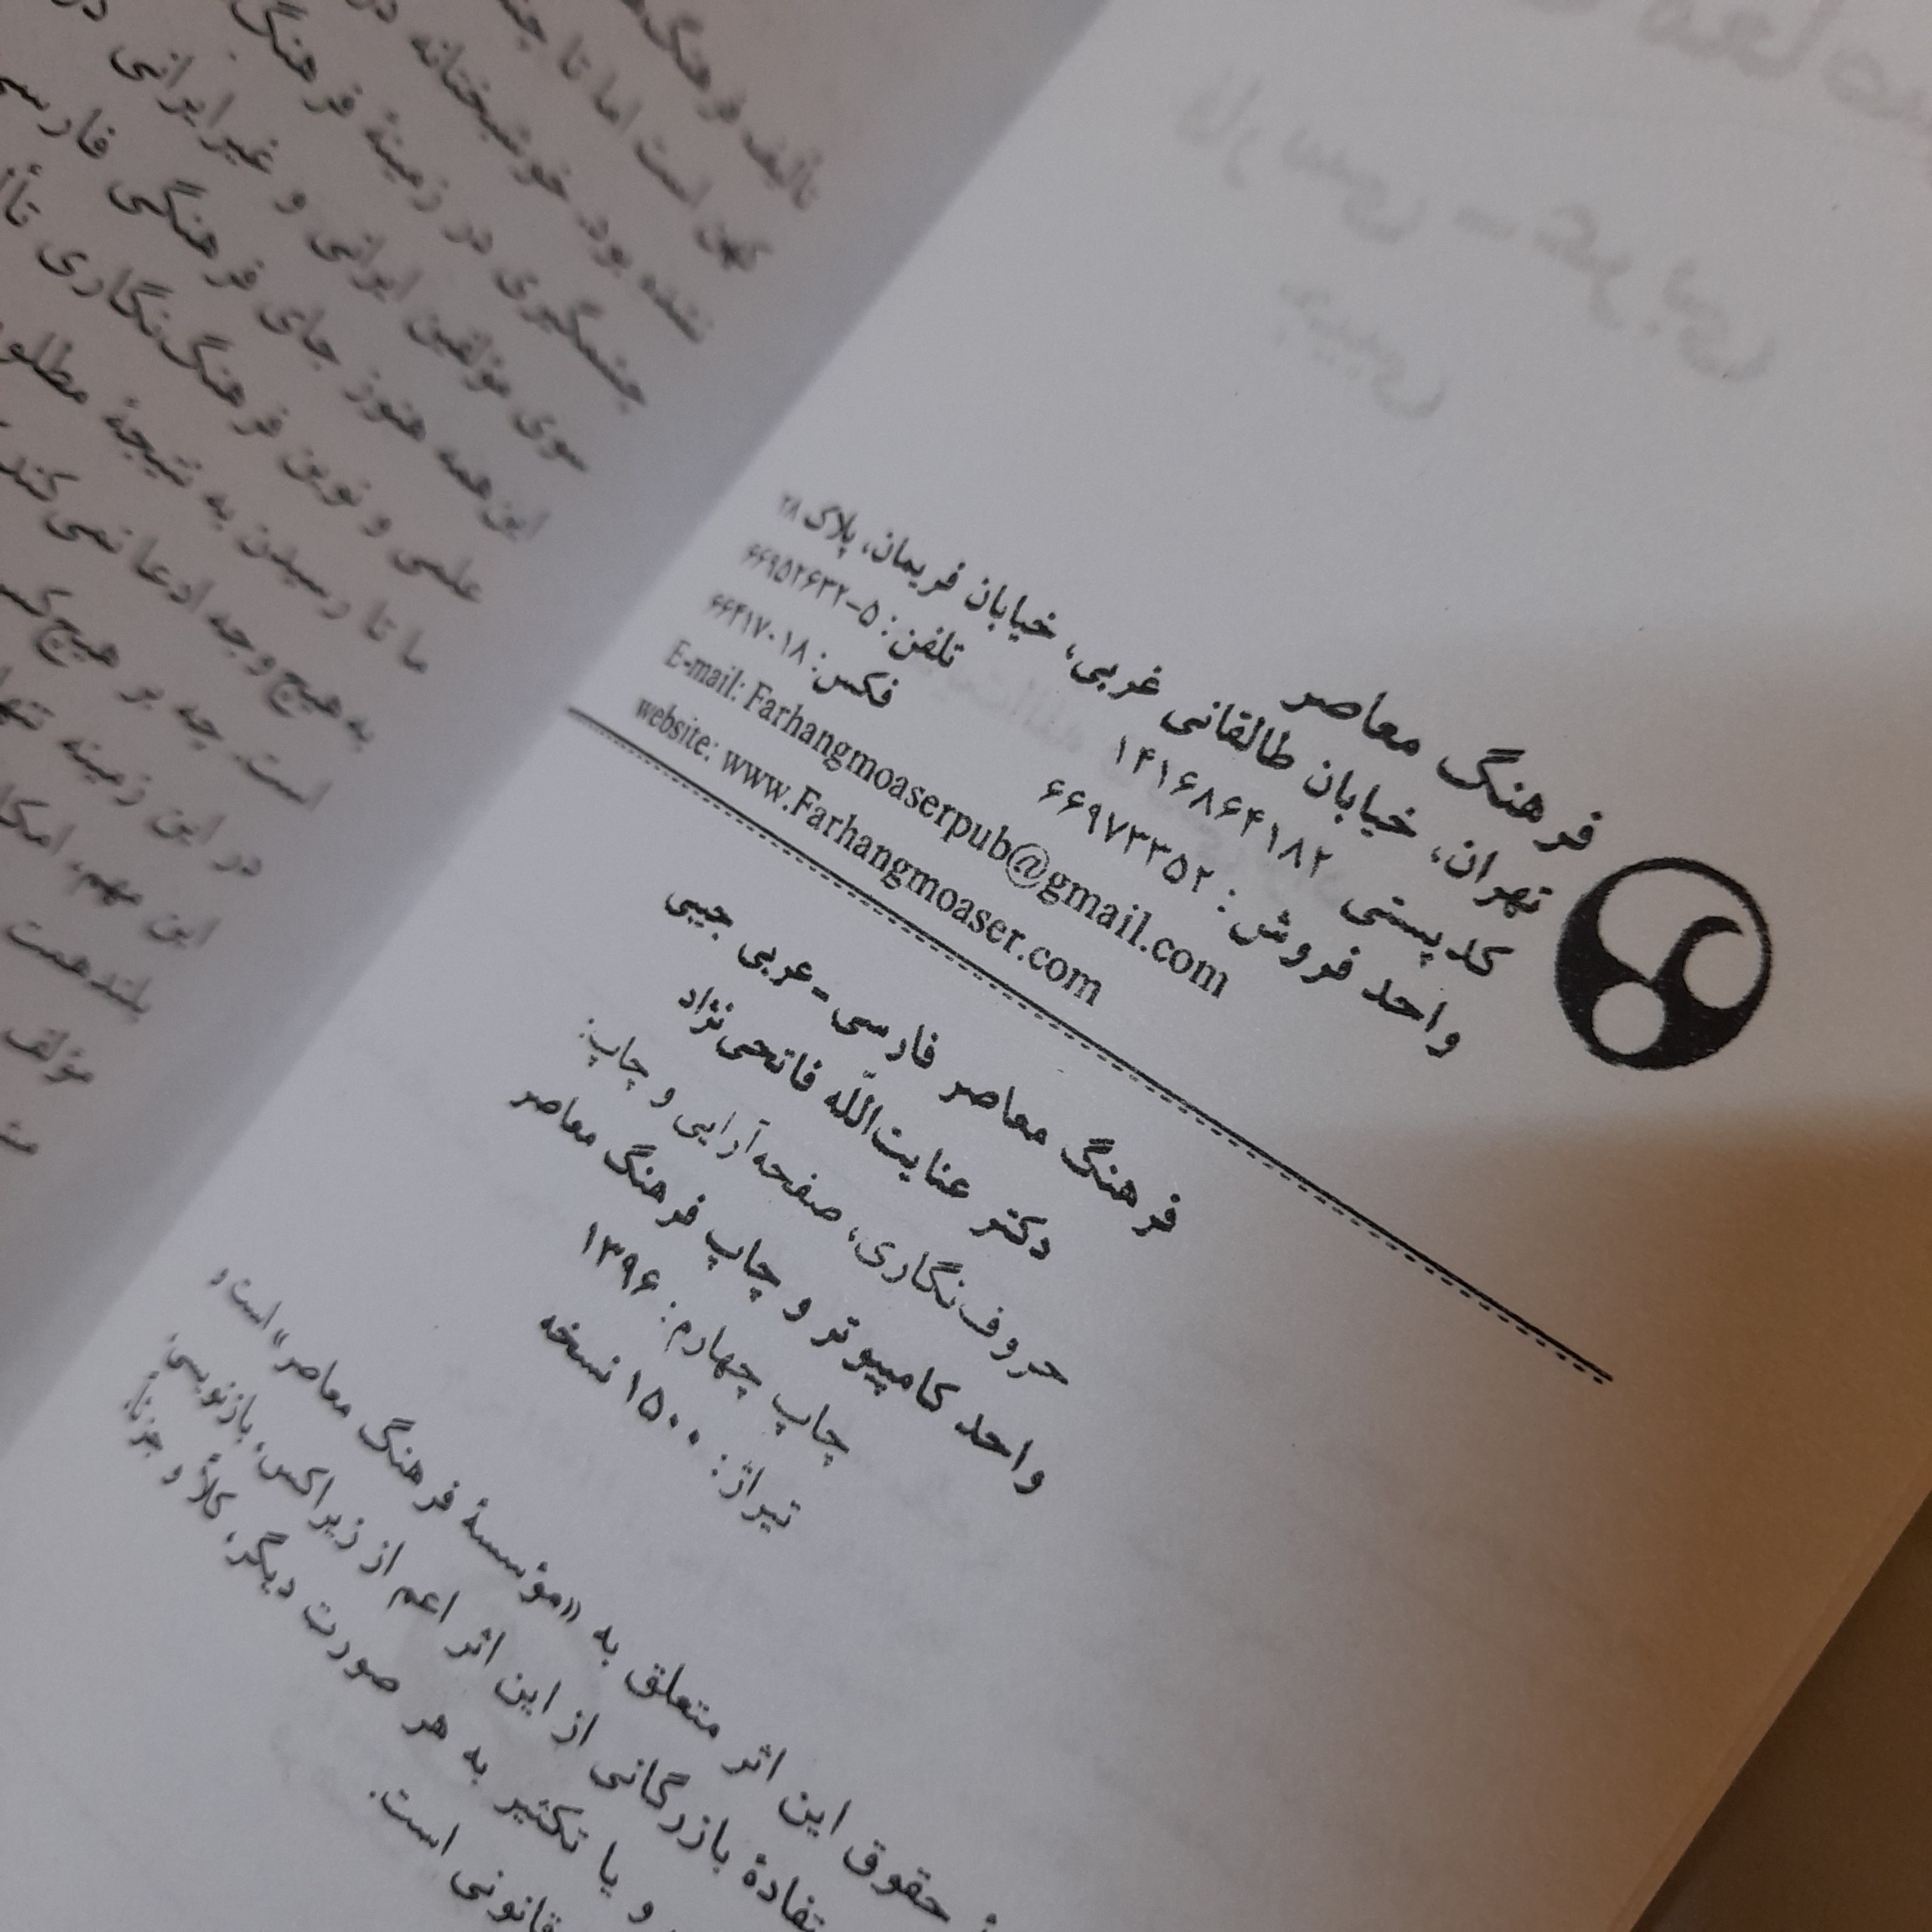 فرهنگ معاصر
تهران، خیابان طالقانی غربی، خیابان فریمان، پلاک ۲۸
کد پستی ۱۴۱۶۸۶۴۱۸۲ تلفن: ۵-۶۶۹۵۲۶۳۲
واحد فروش: ۶۶۹۷۳۳۵۲ فکس: ۶۶۴۱۷۰۱۸
E-mail: Farhangmoaserpub@gmail.com
website: www.Farhangmoaser.com
فرهنگ معاصر فارسی-عربی جیبی
دکتر عنایت‌اللّه فاتحی‌نژاد
حروف‌نگاری، صفحه‌آرایی و چاپ:
واحد کامپیوتر و چاپ فرهنگ معاصر
چاپ چهارم: ۱۳۹۶
تیراژ: ۱۵۰۰ نسخه
حقوق این اثر متعلق به «مؤسسهٔ فرهنگ معاصر» است و
بازرگانی از این اثر اعم از زیراکس، بازنویسی،
و یا تکثیر به هر صورت دیگر، کلاً و جزئاً،
قانونی است.
تألیف فرهنگ
کهن است اما تا
نشده بود. خوشبختانه در
چشمگیری در زمینهٔ فرهنگ
سوی مؤلفین ایرانی و غیرایرانی در
این‌همه هنوز جای فرهنگی فارسی
علمی و نوین فرهنگ‌نگاری
ما تا رسیدن به نتیجهٔ
به هیچ وجه ادعا نمی‌کند
است. چه بر هیچ‌کس
در این زمینه
این مهم،
بلندهمت
مؤلف